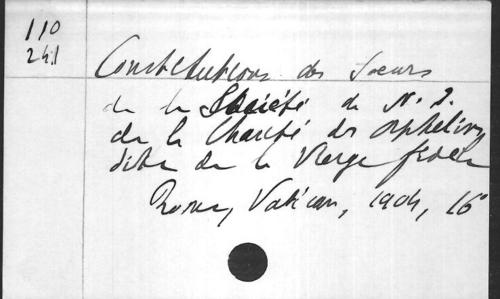 110
241
Constitutions des Soeurs
de la Société de N. D.
de la Charité des orphelins,
dite de la Vierge fidèle
Rome, Vatican, 1904, 16°